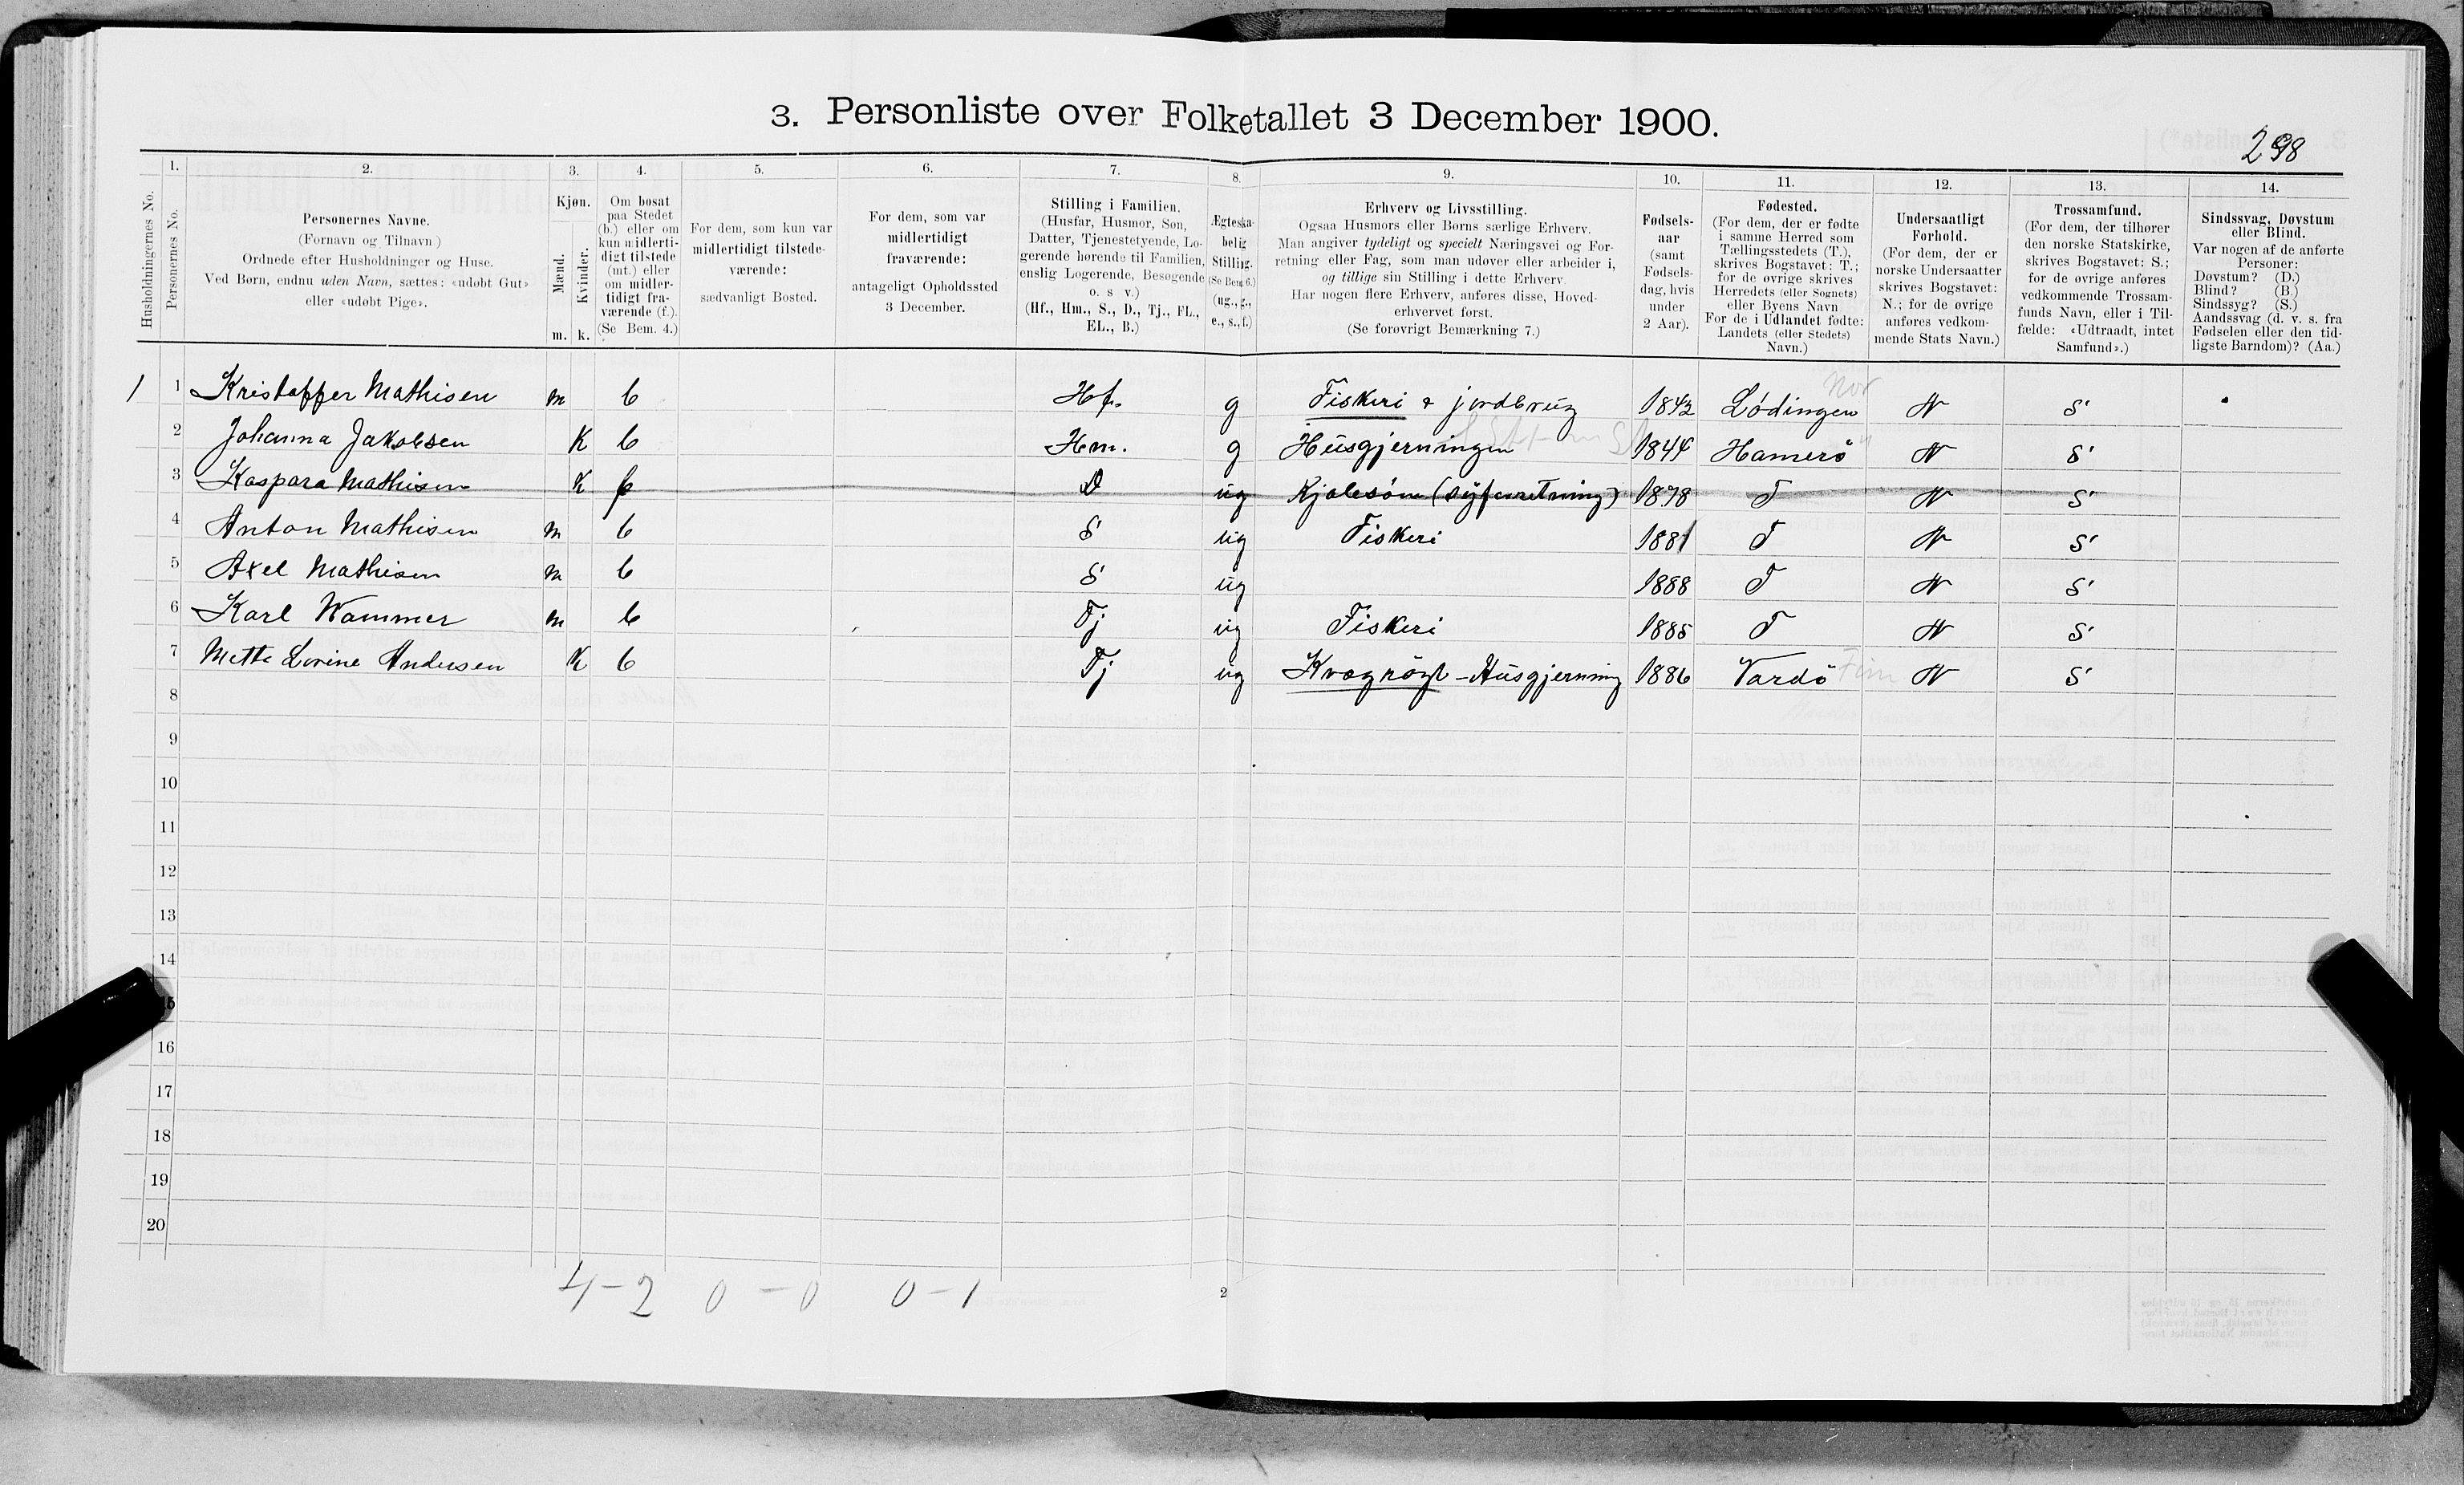 3. Personliste over Folketallet 3 December 1900.
298
Husholdningernes No.
1.
Personernes No.
2.
Personernes Navne.
(Fornavn og Tilnavn)
Ordnede efter Husholdninger og Huse.
Ved Børn, endnu uden Navn, sættes: «udøbt Gut»
eller «udøbt Pige».
3.
Kjøn.
Mænd.
Kvinder.
m. k.
4.
Om bosat
paa Stedet
(b.) eller om
kun midlerti-
digt tilstede
(mt.) eller
om midler-
tidigt fra-
værende (f.).
(Se Bem. 4.)
5.
For dem, som kun var
midlertidigt tilstede-
værende:
sædvanligt Bosted.
6.
For dem, som var
midlertidigt
fraværende:
antageligt Opholdssted
3 December.
7.
Stilling i Familien.
(Husfar, Husmor, Søn,
Datter, Tjenestetyende, Lo-
gerende hørende til Familien,
enslig Logerende, Besøgende
o. s v.)
(Hf., Hm., S., D., Tj., FL.,
EL., B.)
8.
Ægteska-
belig
Stilling.
(Se Bem 6.)
(ug., g.,
e., s., f.)
9.
Erhverv og Livsstilling.
Ogsaa Husmors eller Børns særlige Erhverv.
Man angiver tydeligt og specielt Næringsvei og For-
retning eller Fag, som man udøver eller arbeider i,
og tillige sin Stilling i dette Erhverv.
Har nogen flere Erhverv, anføres disse, Hoved-
erhvervet først.
(Se forøvrigt Bemærkning 7.)
10.
Fødsels-
aar
(samt
Fødsels-
dag, hvis
under
2 Aar).
11.
Fødested.
(For dem, der er fødte
i samme Herred som
Tællingsstedets (T.),
skrives Bogstavet: T.;
for de øvrige skrives
Herredets (eller Sognets)
eller Byens Navn
For de i Udlandet fødte:
Landets (eller Stedets)
Navn.)
12.
Undersaatligt
Forhold.
(For dem, der er
norske Undersaatter
skrives Bogstavet:
N.; for de øvrige
anføres vedkom-
mende Stats Navn.)
13.
Trossamfund.
(For dem, der tilhører
den norske Statskirke,
skrives Bogstavet: S.;
for de øvrige anføres
vedkommende Trossam-
funds Navn, eller i Til-
fælde: «Udtraadt, intet
Samfund».)
14.
Sindssvag, Døvstum
eller Blind.
Var nogen af de anførte
Personer:
Døvstum? (D.)
Blind? (B.)
Sindssyg? (S.)
Aandssvag (d. v. s. fra
Fødselen eller den tid-
ligste Barndom)? (Aa.)
1 1 Kristoffer Mathisen m b Hf. g Fiskeri & jordbrug 1842 Lødingen Nor N S
2 Johanna Jakobsen K b Hm. g Husgjerningen 1844 Hamerö N S
3 Kaspara Mathisen K f D ug Kjolesöm (syforretning) 1878 T N S
4 Anton Mathisen m b S ug Fiskeri 1881 T N S
5 Axel Mathisen m b S ug 1888 T N S
6 Karl Wammer m b Tj ug Fiskeri 1885 T N S
7 Mette Lovine Andersen K b Tj ug Kvægrögt - Husgjerning 1886 Vardö Fin N S
8
9
10
11
12
13
14
15
16
17
18
19
20
4 - 2 0 - 0 0 - 1
2